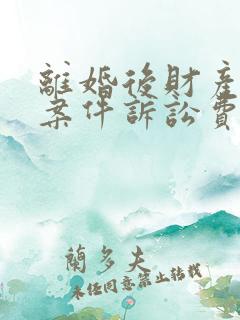 離婚後財產
案件訴訟費
蘭多夫
未經同意禁止轉載